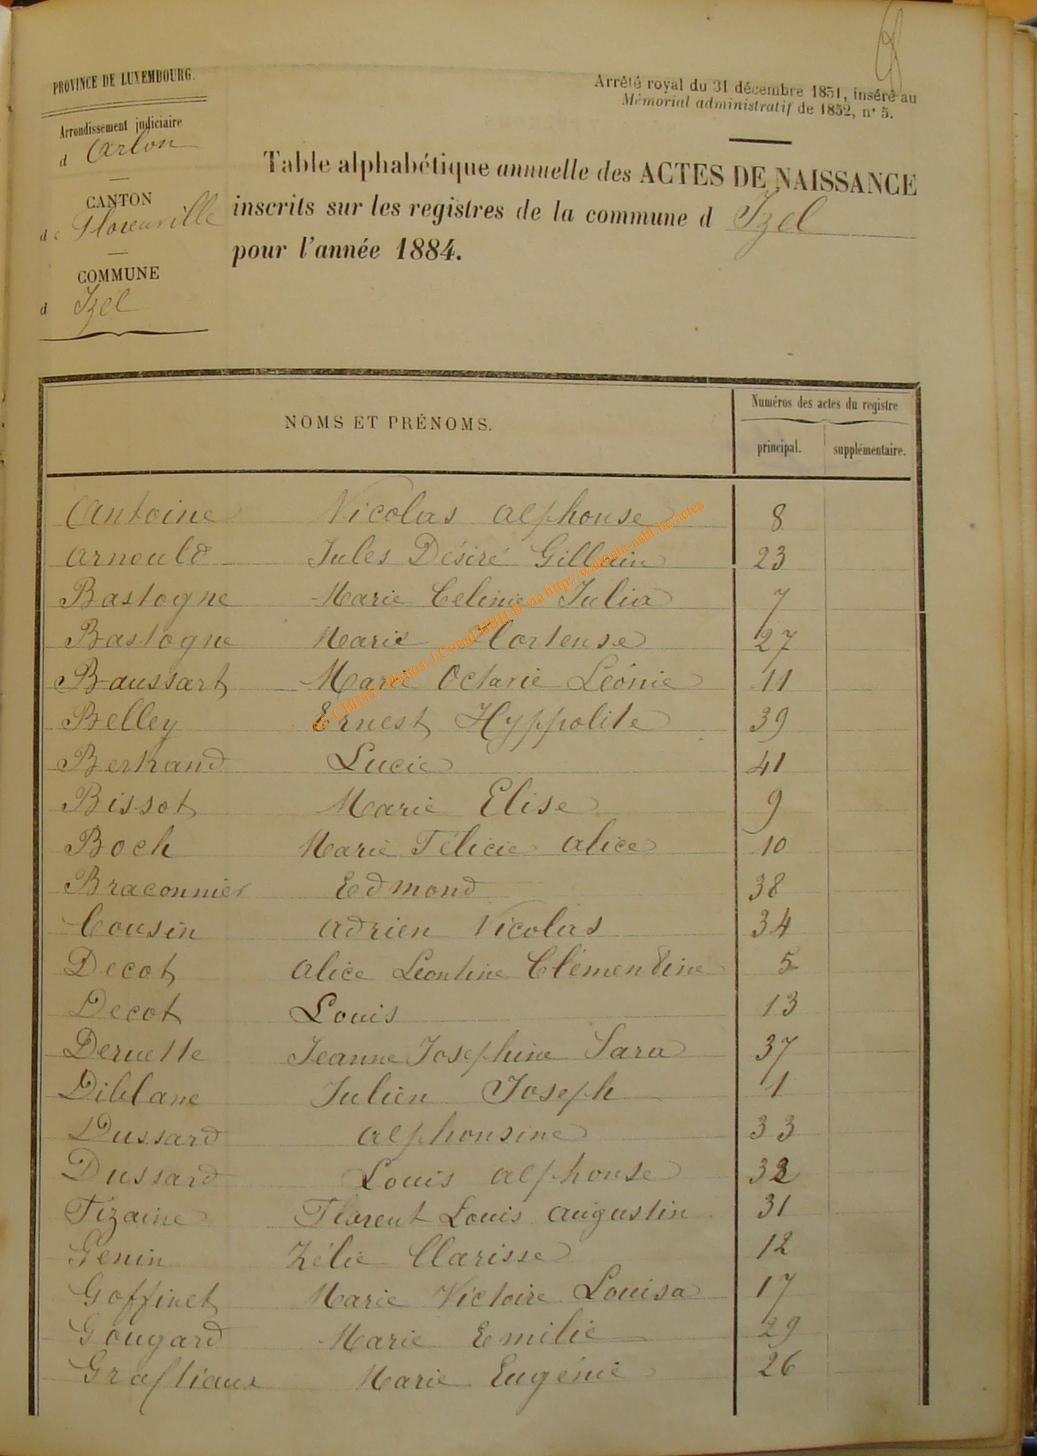 PROVINCE DE LUXEMBOURG.
Arrondissement judiciaire
d Arlon
CANTON
de Florenville
COMMUNE
d Izel
Arrêté royal du 31 décembre 1851, inséré au
Mémorial administratif de 1852, n° 5.
Table alphabétique annuelle des ACTES DE NAISSANCE
inscrits sur les registres de la commune d Izel
pour l'année 1884.
NOMS ET PRÉNOMS.
Numéros des actes du registre
principal. supplémentaire.
Antoine Nicolas Alphonse 8
Arnould Jules Désiré Gillain 23
Bastogne Marie Celinie Julia 7
Bastogne Marie Hortense 27
Baussart Marie Octavie Léonie 11
Belley Ernest Hyppolite 39
Bertrand Lucie 41
Bissot Marie Elise 9
Boch Marie Félicie Alice 10
Braconnier Edmond 38
Cousin Adrien Nicolas 34
Decot Alice Léontine Clémentine 5
Decot Louis 13
Deruette Jeanne Josephine Sara 37
Diblane Julien Joseph 1
Dussard Alphonsine 33
Dussard Louis Alphonse 32
Fizaine Florent Louis Augustin 31
Genin Zélie Clarisse 12
Goffinet Marie Victoire Louisa 17
Gougard Marie Emilie 29
Graftiaux Marie Eugénie 26